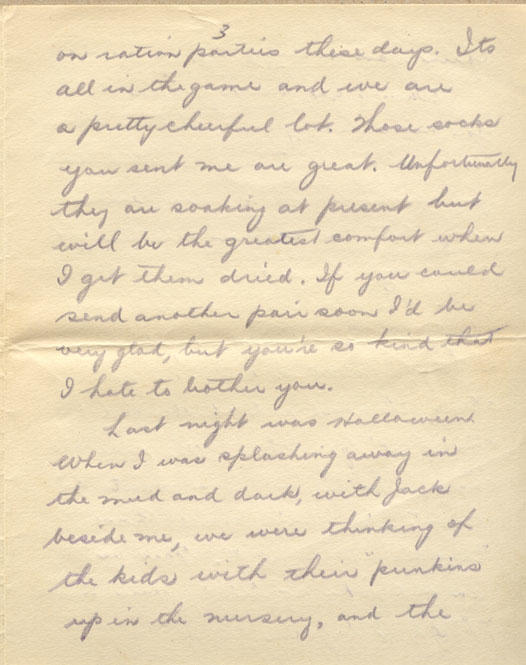 3
on ration parties these days. Its
all in the game and we are
a pretty cheerful lot. Those socks
you sent me are great. Unfortunately
they are soaking at present but
will be the greatest comfort when
I get them dried. If you could
send another pair soon I'd be
very glad, but you're so kind that
I hate to bother you.
Last night was Halloween.
When I was splashing away in
the mud and dark, with Jack
beside me, we were thinking of
the kids with their "punkins"
up in the nursery, and the